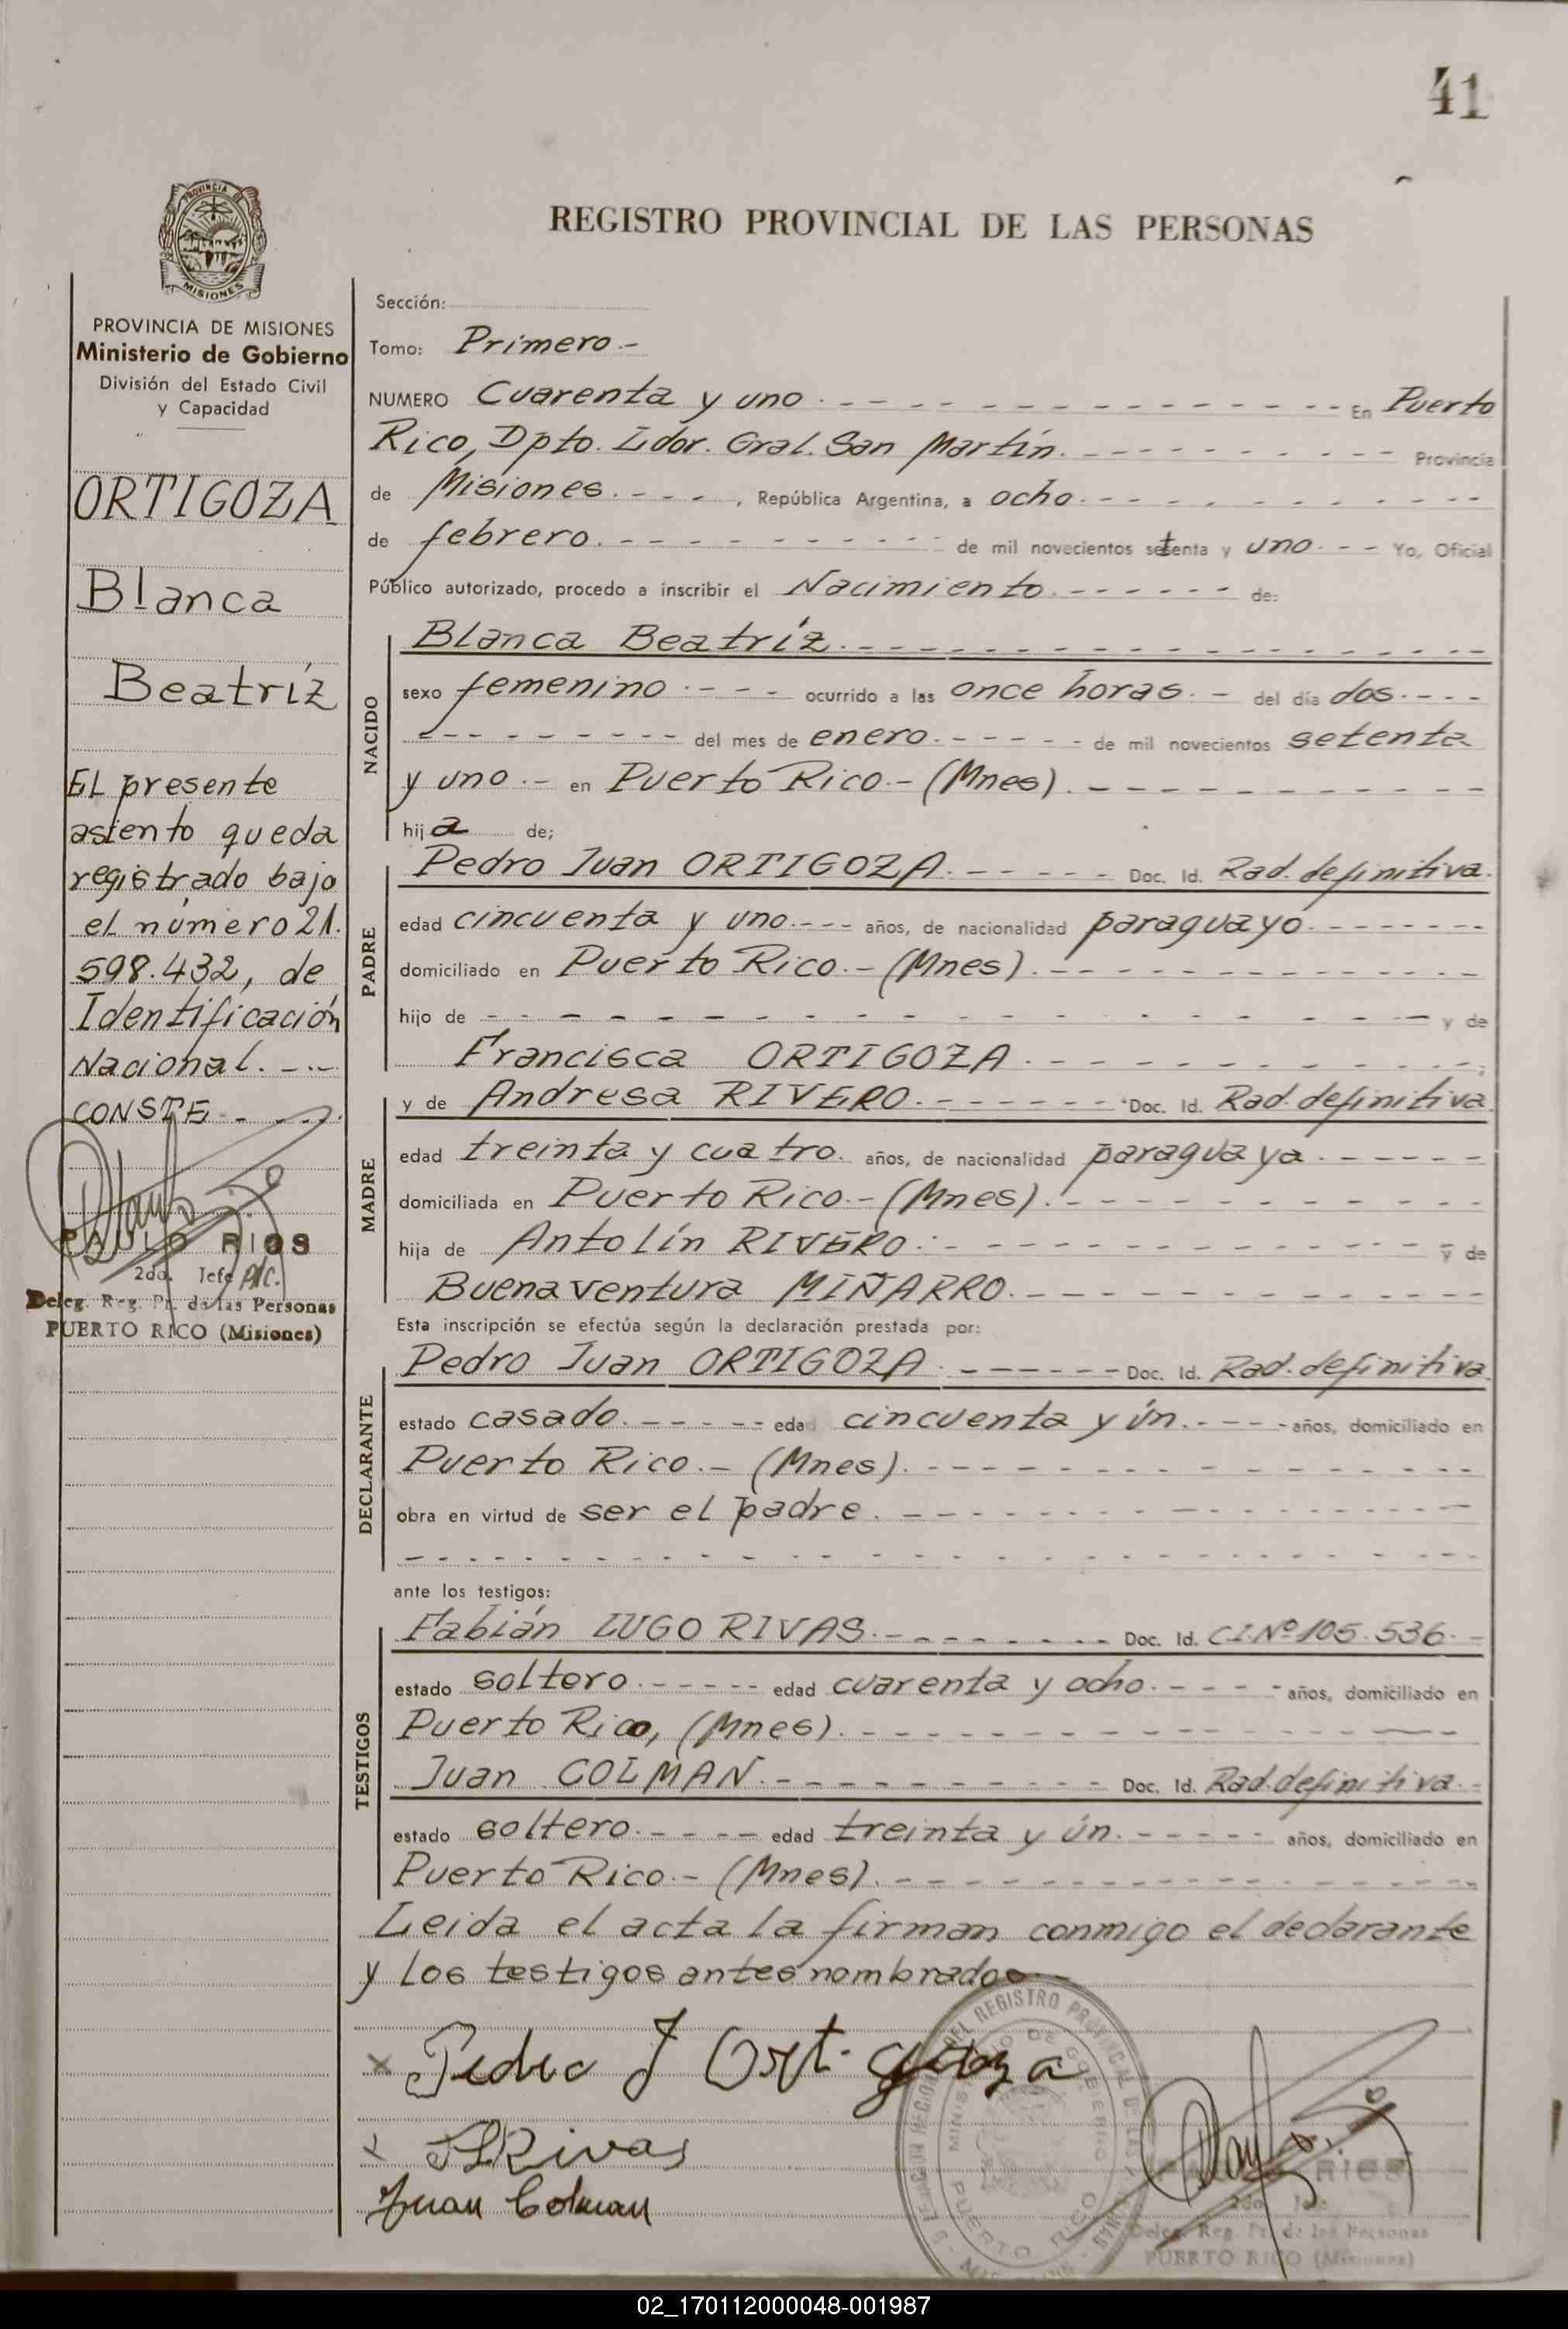 41
PROVINCIA DE
MISIONES
REGISTRO PROVINCIAL DE LAS PERSONAS
PROVINCIA DE MISIONES
Ministerio de Gobierno
División del Estado Civil
y Capacidad
ORTIGOZA
Blanca
Beatríz
EL presente
asiento queda
registrado bajo
el número 21.
598.432, de
Identificación
Nacional. -.-
CONSTE - - -.
PABLO RIOS
2do. Jefe A/C.
Deleg. Reg. Pr. de las Personas
PUERTO RICO (Misiones)
Sección:
Tomo: Primero.-
NUMERO Cuarenta y uno.- - - - - En Puerto
Rico, Dpto. Ldor. Gral. San Martín.- - - - - Provincia
de Misiones.- - -, República Argentina, a ocho.- - - - -
de febrero.- - - - - de mil novecientos setenta y uno.- - - Yo, Oficial
Público autorizado, procedo a inscribir el Nacimiento.- - - - - de:
NACIDO
Blanca Beatríz.- - - - -
sexo femenino.- - - ocurrido a las once horas.- del día dos.- - -
- - - - - del mes de enero.- - - - - de mil novecientos setenta
y uno.- en Puerto Rico.- (Mnes).- - - - -
hija de;
PADRE
Pedro Juan ORTIGOZA.- - - - - Doc. Id. Rad. definitiva.
edad cincuenta y uno.- - - años, de nacionalidad paraguayo.- - - - -
domiciliado en Puerto Rico.- (Mnes).- - - - -
hijo de - - - - - y de
Francisca ORTIGOZA.- - - - -;
MADRE
y de Andresa RIVERO.- - - - - Doc. Id. Rad. definitiva.
edad treinta y cuatro. años, de nacionalidad paraguaya.- - - - -
domiciliada en Puerto Rico.- (Mnes).- - - - -
hija de Antolín RIVERO.- - - - - y de
Buenaventura MIÑARRO.- - - - -
Esta inscripción se efectúa según la declaración prestada por:
DECLARANTE
Pedro Juan ORTIGOZA.- - - - - Doc. Id. Rad. definitiva.
estado casado.- - - - - edad cincuenta y ún.- - - - años, domiciliado en
Puerto Rico.- (Mnes).- - - - -
obra en virtud de ser el padre.- - - - -
- - - - -
ante los testigos:
TESTIGOS
Fabián LUGO RIVAS.- - - - - Doc. Id. C.I.Nº 105.536.-
estado soltero.- - - - - edad cuarenta y ocho.- - - - años, domiciliado en
Puerto Rico, (Mnes).- - - - -
Juan COLMAN.- - - - - Doc. Id. Rad. definitiva.-
estado soltero.- - - - edad treinta y ún.- - - - - años, domiciliado en
Puerto Rico.- (Mnes).- - - - -
Leida el acta la firman conmigo el declarante
y los testigos antes nombrados.-
x Pedro J Ortigoza
x FLRivas
Juan Colman
DEL REGISTRO PROVINCIAL DE LAS
MINISTERIO DE GOBIERNO
PUERTO RICO
RIOS
2do. Jefe
Deleg. Reg. Pr. de las Personas
PUERTO RICO (Misiones)
02_170112000048-001987